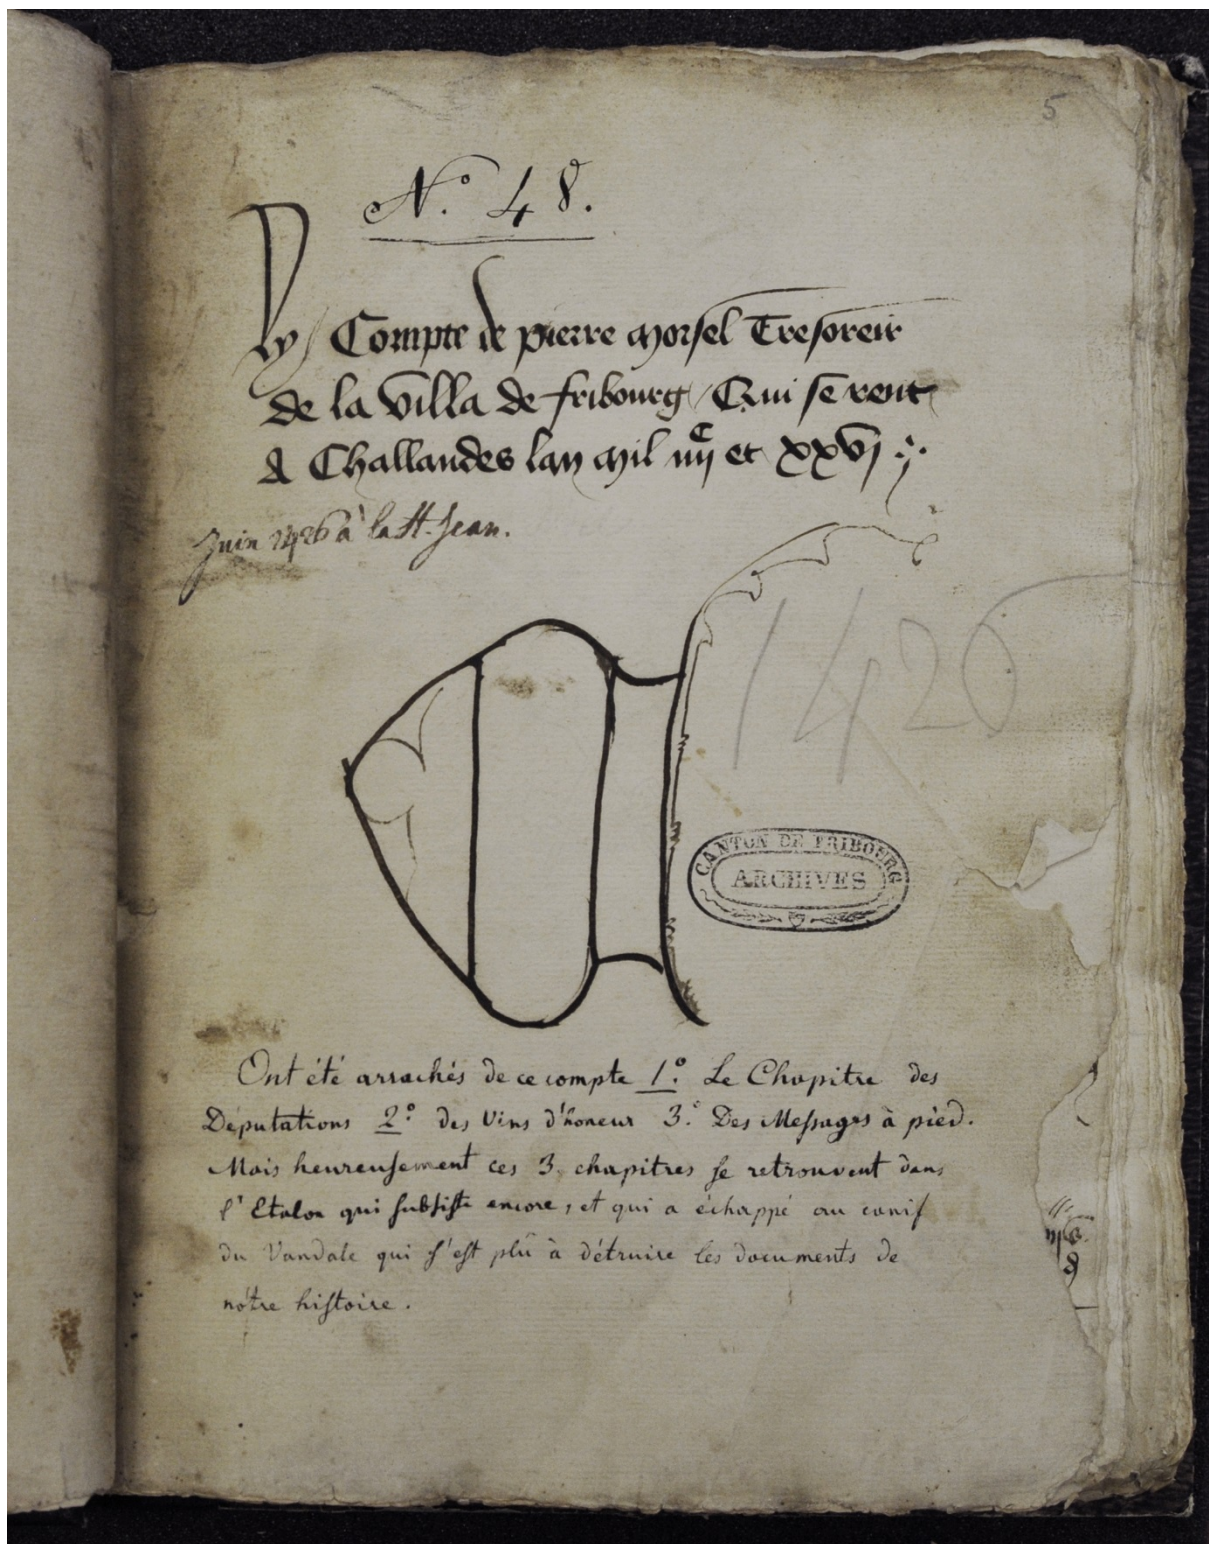 5
N.° 48.
Compte de pierre morsel Tresoreir
de la villa de fribourg / Qui se rent
A Challandes lan mil iiijc et xxvj
Juin 1426 à la St. Jean.
1426
CANTON DE FRIBOURG
ARCHIVES
Ont été arrachés de ce compte 1°. Le Chapitre des
Députations 2°. des Vins d'honeur 3.° Des Messages à pied.
Mais heureusement ces 3 chapitres se retrouvent dans
l'Etalon qui subsiste encore, et qui a échappé au canif
du Vandale qui s'est plû à détruire les documents de
nôtre histoire.